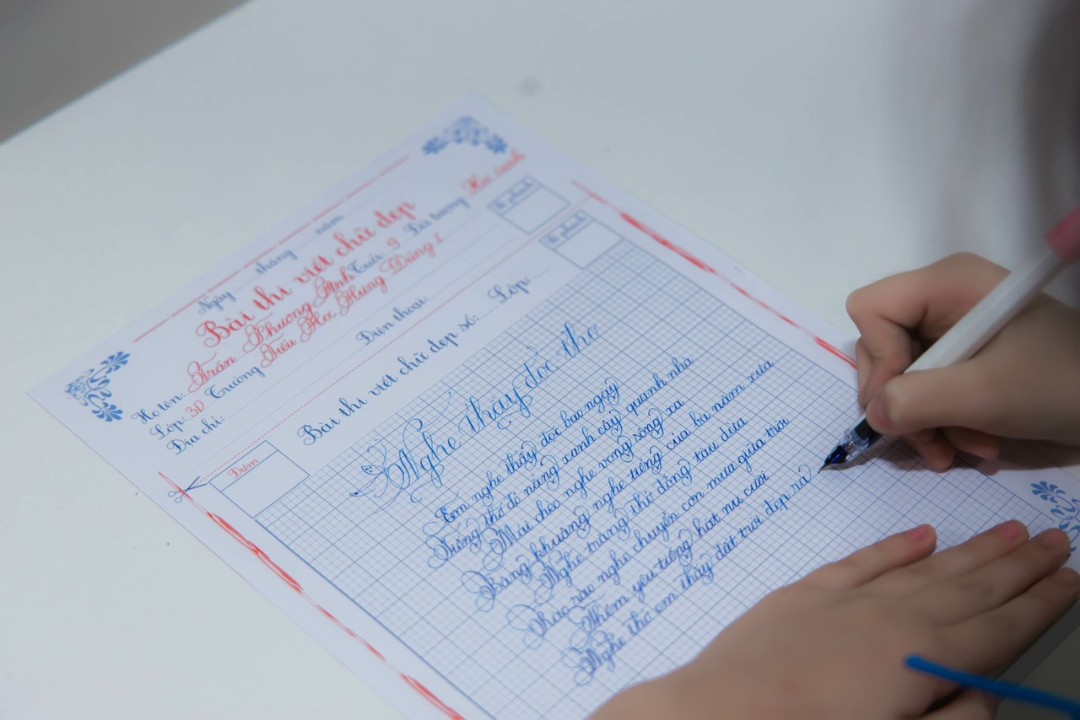 Ngày tháng năm
Bài thi viết chữ đẹp
Họ tên: Trần Phương Anh Tuổi: 9 Đối tượng Học sinh
Lớp: 3D Trường Tiểu Học Hưng Dũng 1
Địa chỉ: Điện thoại:
Số phách
Số phách
Bài thi viết chữ đẹp số: Lớp:
Điểm
Nghe thầy đọc thơ
Em nghe thầy đọc bao ngày
Tiếng thơ đỏ nắng xanh cây quanh nhà
Mái chèo nghe vọng sông xa
Bâng khuâng nghe tiếng của bà năm xưa
Nghe trăng thở động tàu dừa
Rào rào nghe chuyển cơn mưa giữa trời
Thêm yêu tiếng hát nụ cười
Nghe thơ em thấy đất trời đẹp ra